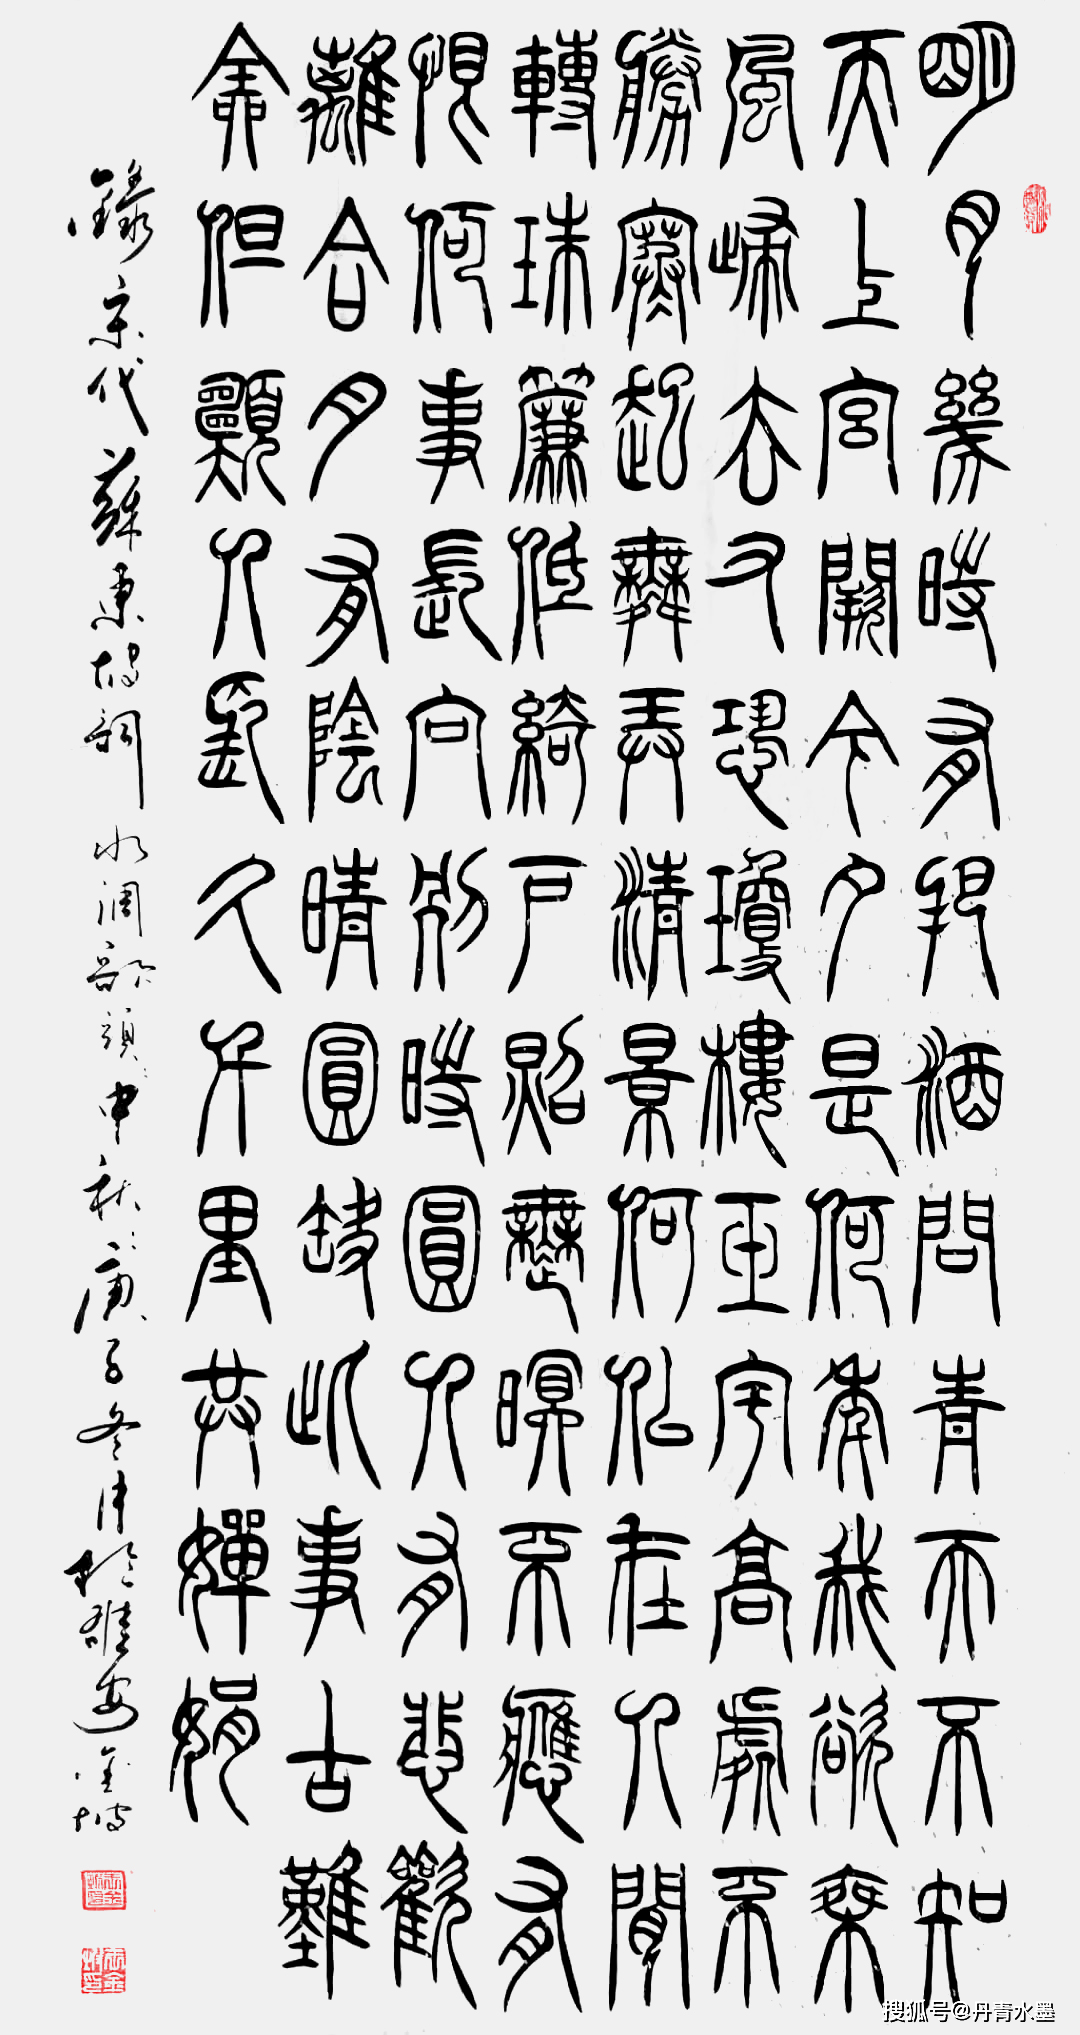 明月幾時有把酒問青天不知
天上宮闕今夕是何年我欲乘
風歸去又恐瓊樓玉宇高處不
勝寒起舞弄清景何似在人間
轉珠簾低綺戶照無眠不應有
恨何事長向別時圓人有悲歡
離合月有陰晴圓缺此事古難
全但願人長久千里共嬋娟
錄宋代蘇東坡詞水調歌頭中秋庚子冬於雄安金坡
搜狐号@丹青水墨